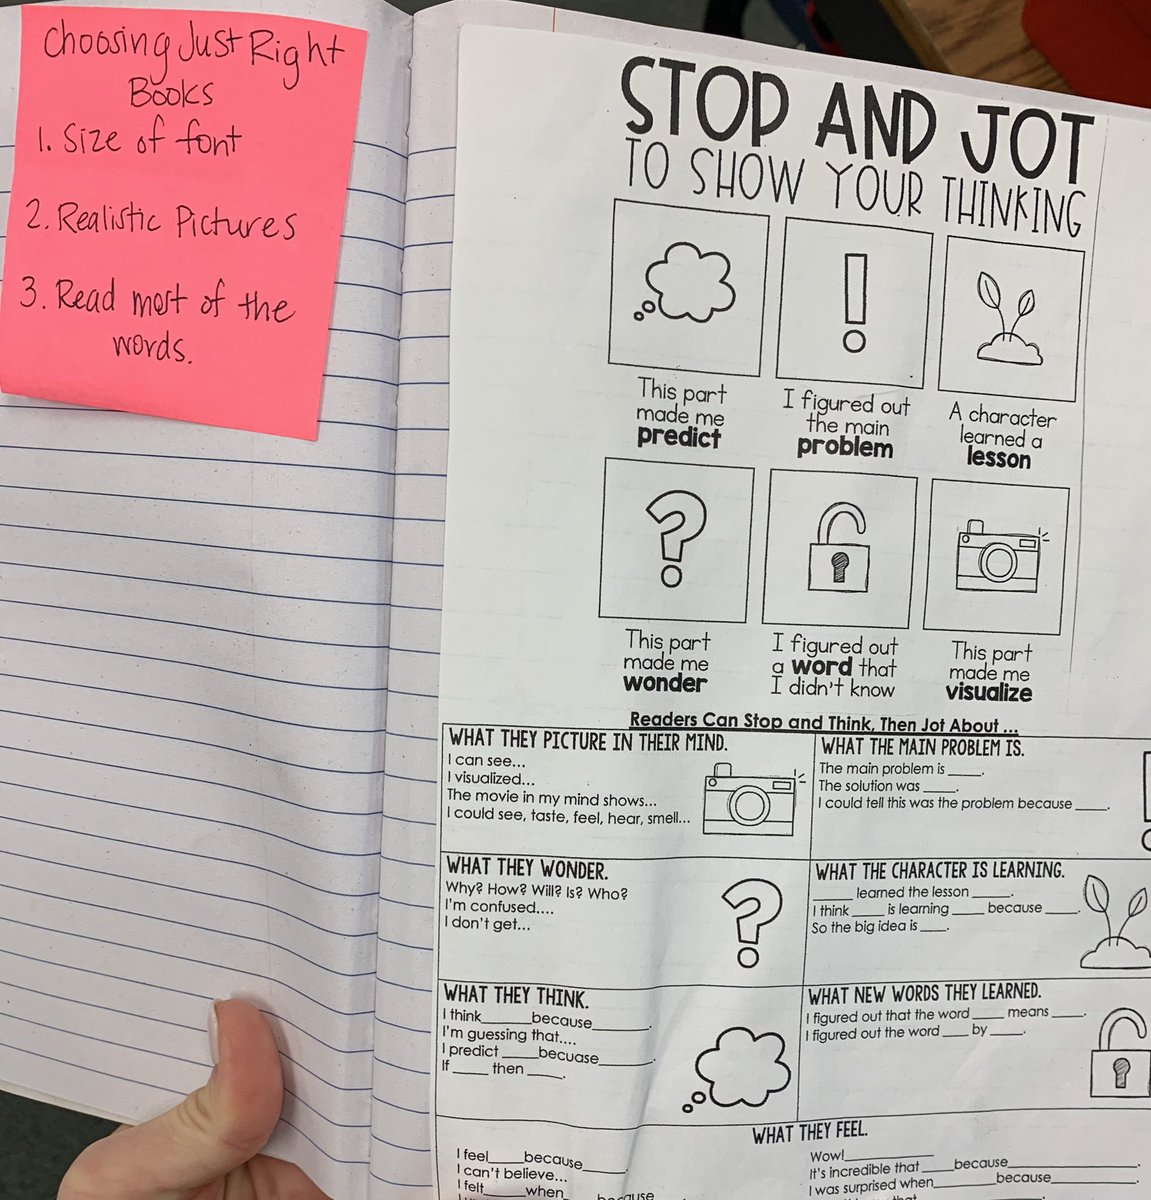 Choosing Just Right
Books
1. Size of font
2. Realistic Pictures
3. Read most of the
words.
STOP AND JOT
TO SHOW YOUR THINKING
This part
made me
predict
I figured out
the main
problem
A character
learned a
lesson
This part
made me
wonder
I figured out
a word that
I didn't know
This part
made me
visualize
Readers Can Stop and Think, Then Jot About ...
WHAT THEY PICTURE IN THEIR MIND.
I can see...
I visualized...
The movie in my mind shows...
I could see, taste, feel, hear, smell...
WHAT THE MAIN PROBLEM IS.
The main problem is ____.
The solution was ____.
I could tell this was the problem because ____.
WHAT THEY WONDER.
Why? How? Will? Is? Who?
I'm confused....
I don't get...
WHAT THE CHARACTER IS LEARNING.
____ learned the lesson ____.
I think ____ is learning ____ because ____.
So the big idea is ____.
WHAT THEY THINK.
I think______because_______.
I'm guessing that....
I predict ____becuase______.
If ____ then ____.
WHAT NEW WORDS THEY LEARNED.
I figured out that the word ____ means ____.
I figured out the word ____ by ____.
WHAT THEY FEEL.
I feel____because_____.
I can't believe...
I felt____when____
Wow!__________
It's incredible that ____because______________.
I was surprised when ________because________.